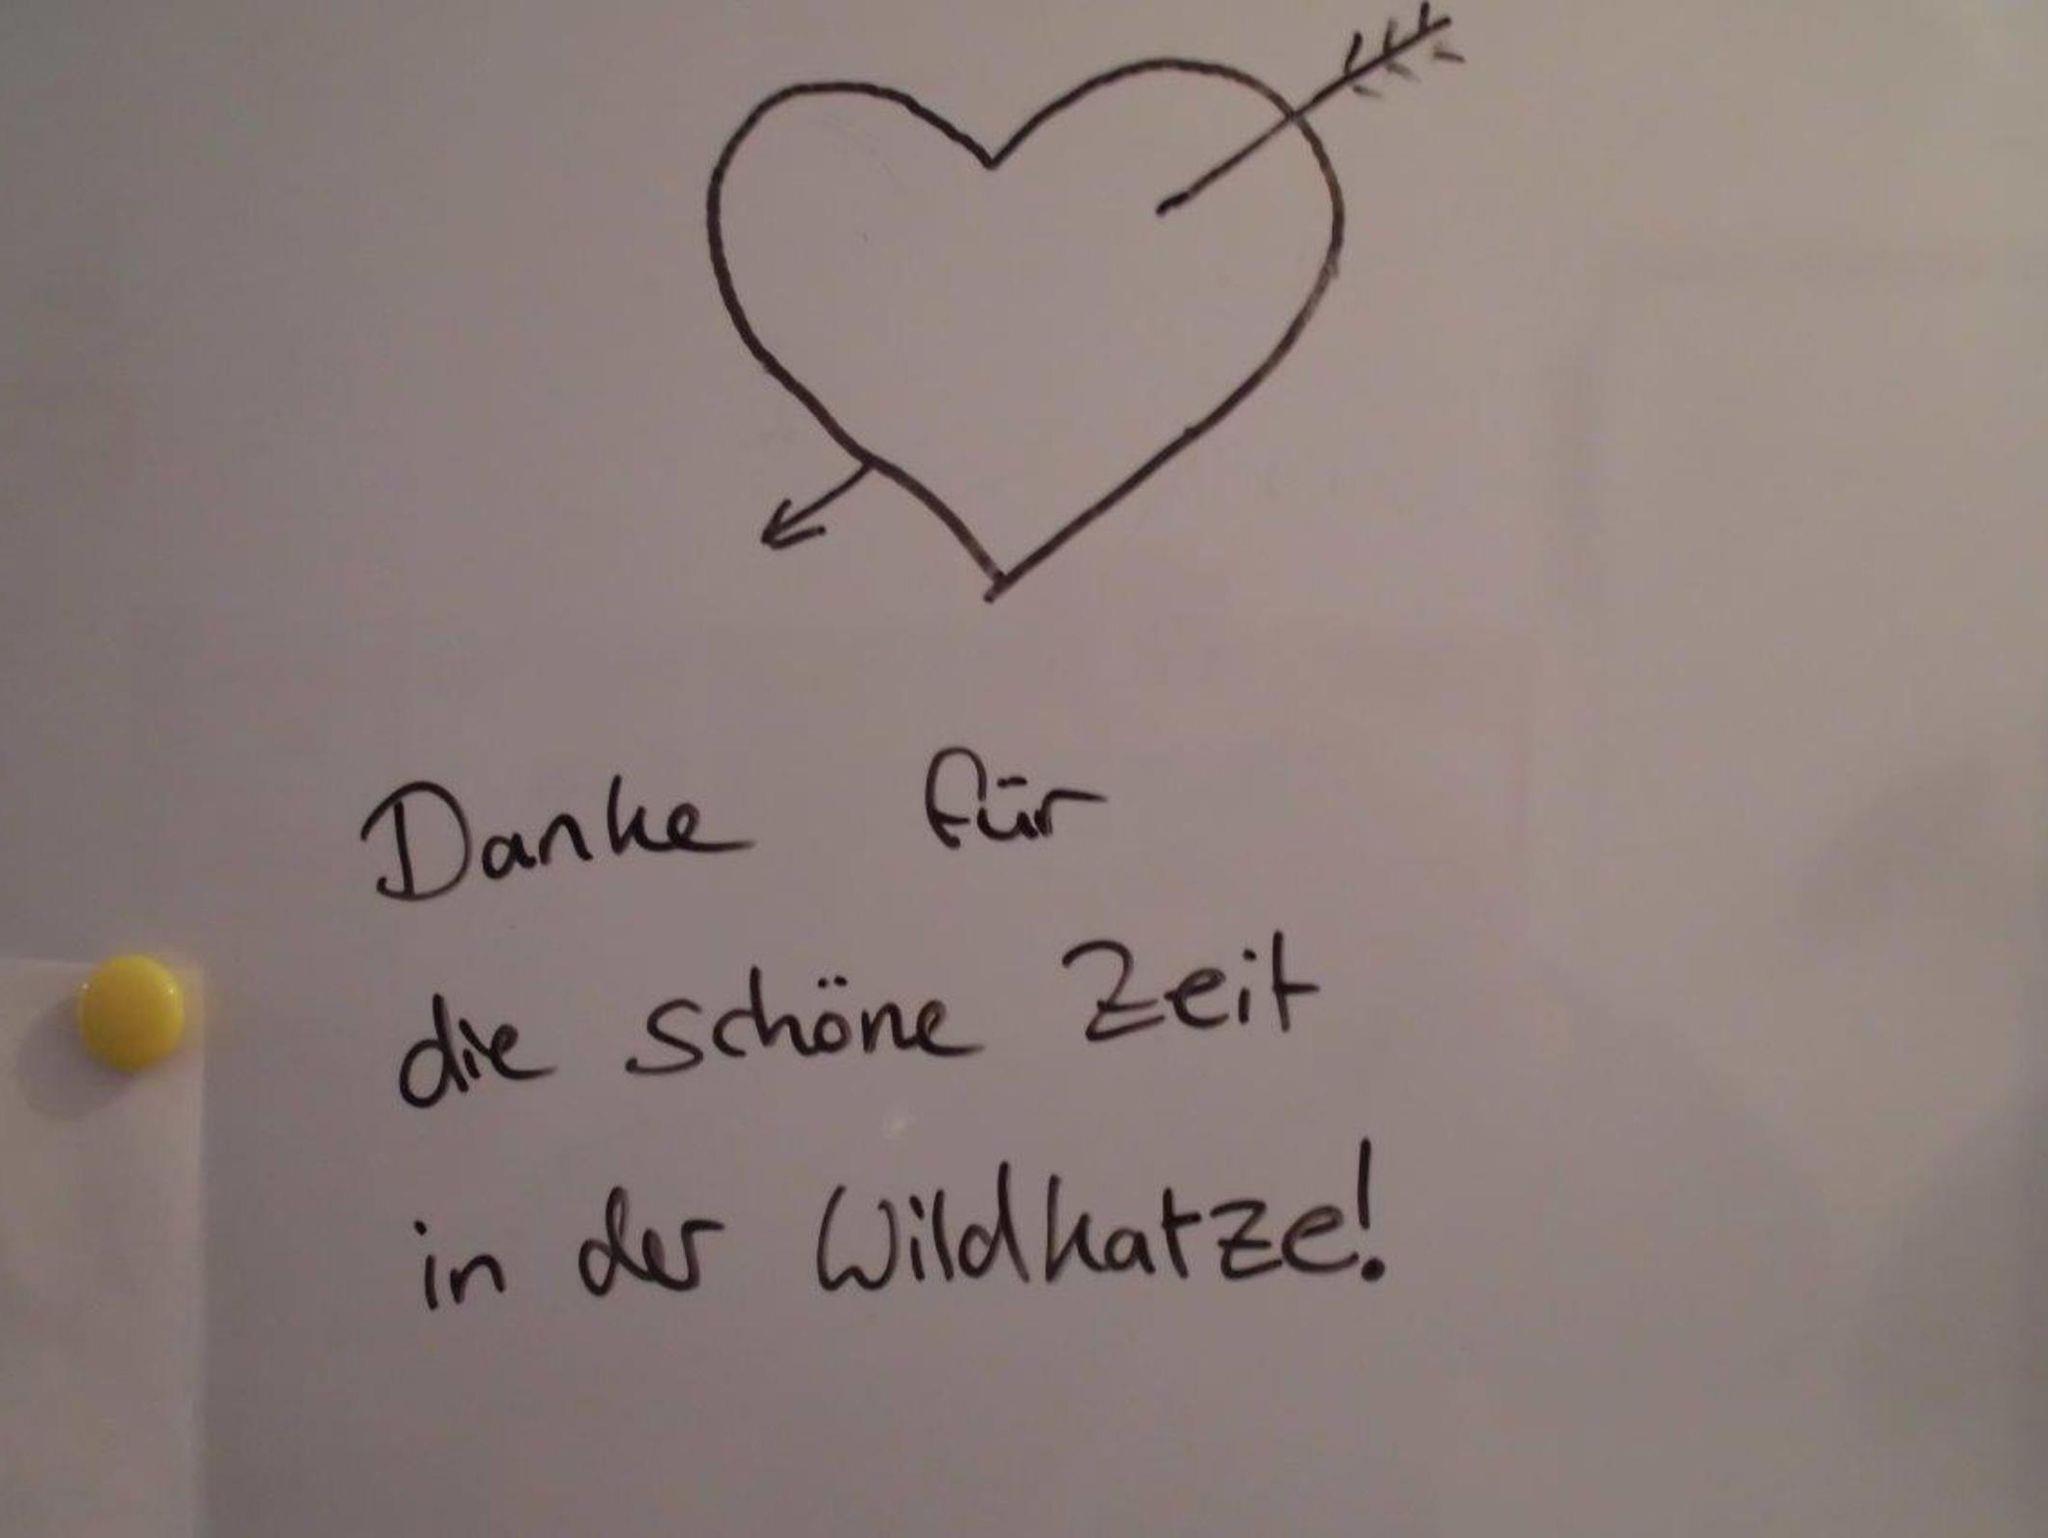 Danke für
die schöne Zeit
in der Wildkatze!